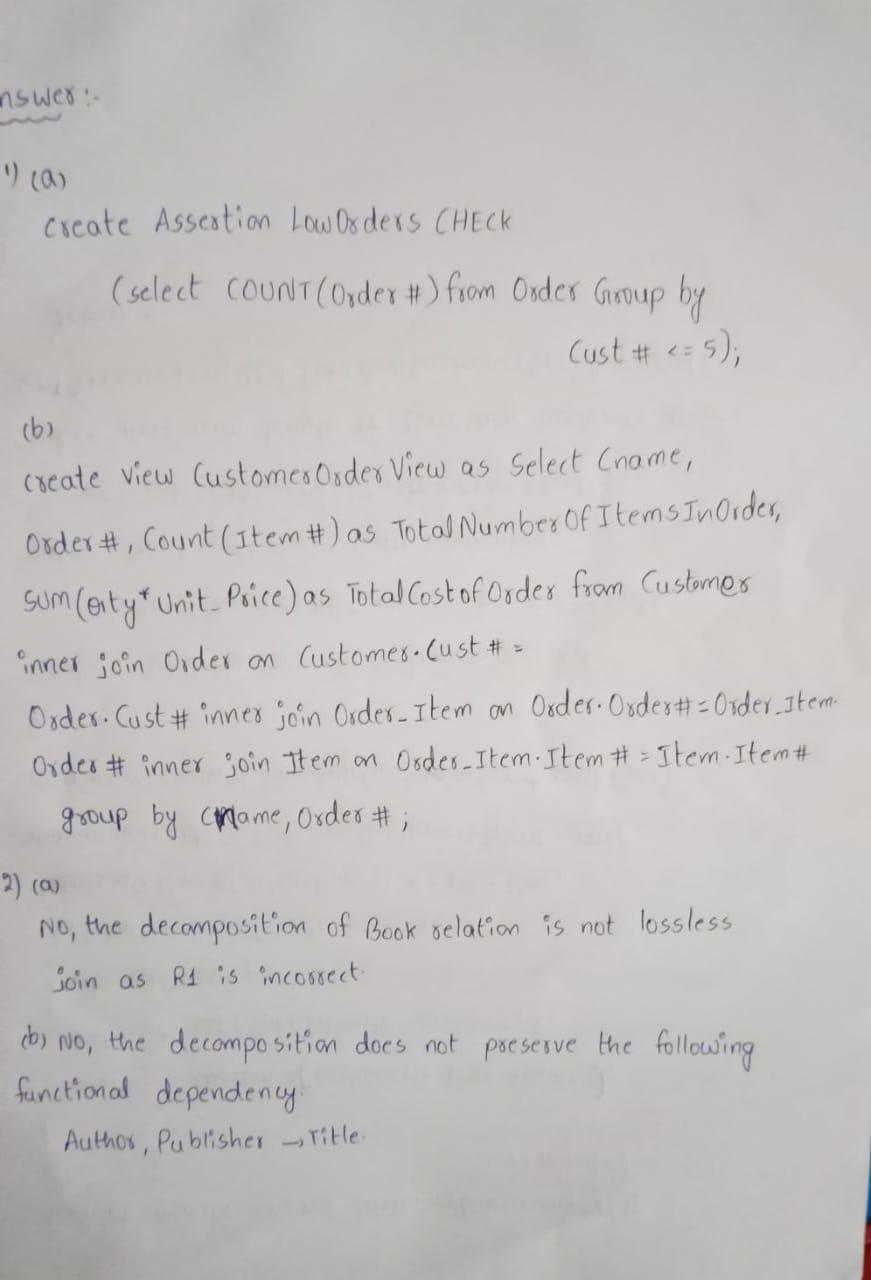 nswer :-
1) (a)
Create Assertion LowOrders CHECK
(select COUNT(Order #) from Order Group by
Cust # <= 5);
(b)
Create View CustomerOrderView as Select Cname,
Order#, Count (Item #) as TotalNumberOfItemsInOrder,
SUM(Qity* Unit_Price) as TotalCostofOrder from Customer
inner join Order on Customer.Cust # =
Order.Cust# inner join Order_Item on Order.Order# = Order_Item.
Order # inner join Item on Order_Item.Item # = Item.Item#
group by Cname, Order # ;
2) (a)
No, the decomposition of Book relation is not lossless
join as R1 is incorrect.
(b) No, the decomposition does not preserve the following
functional dependency.
Author, Publisher → Title.